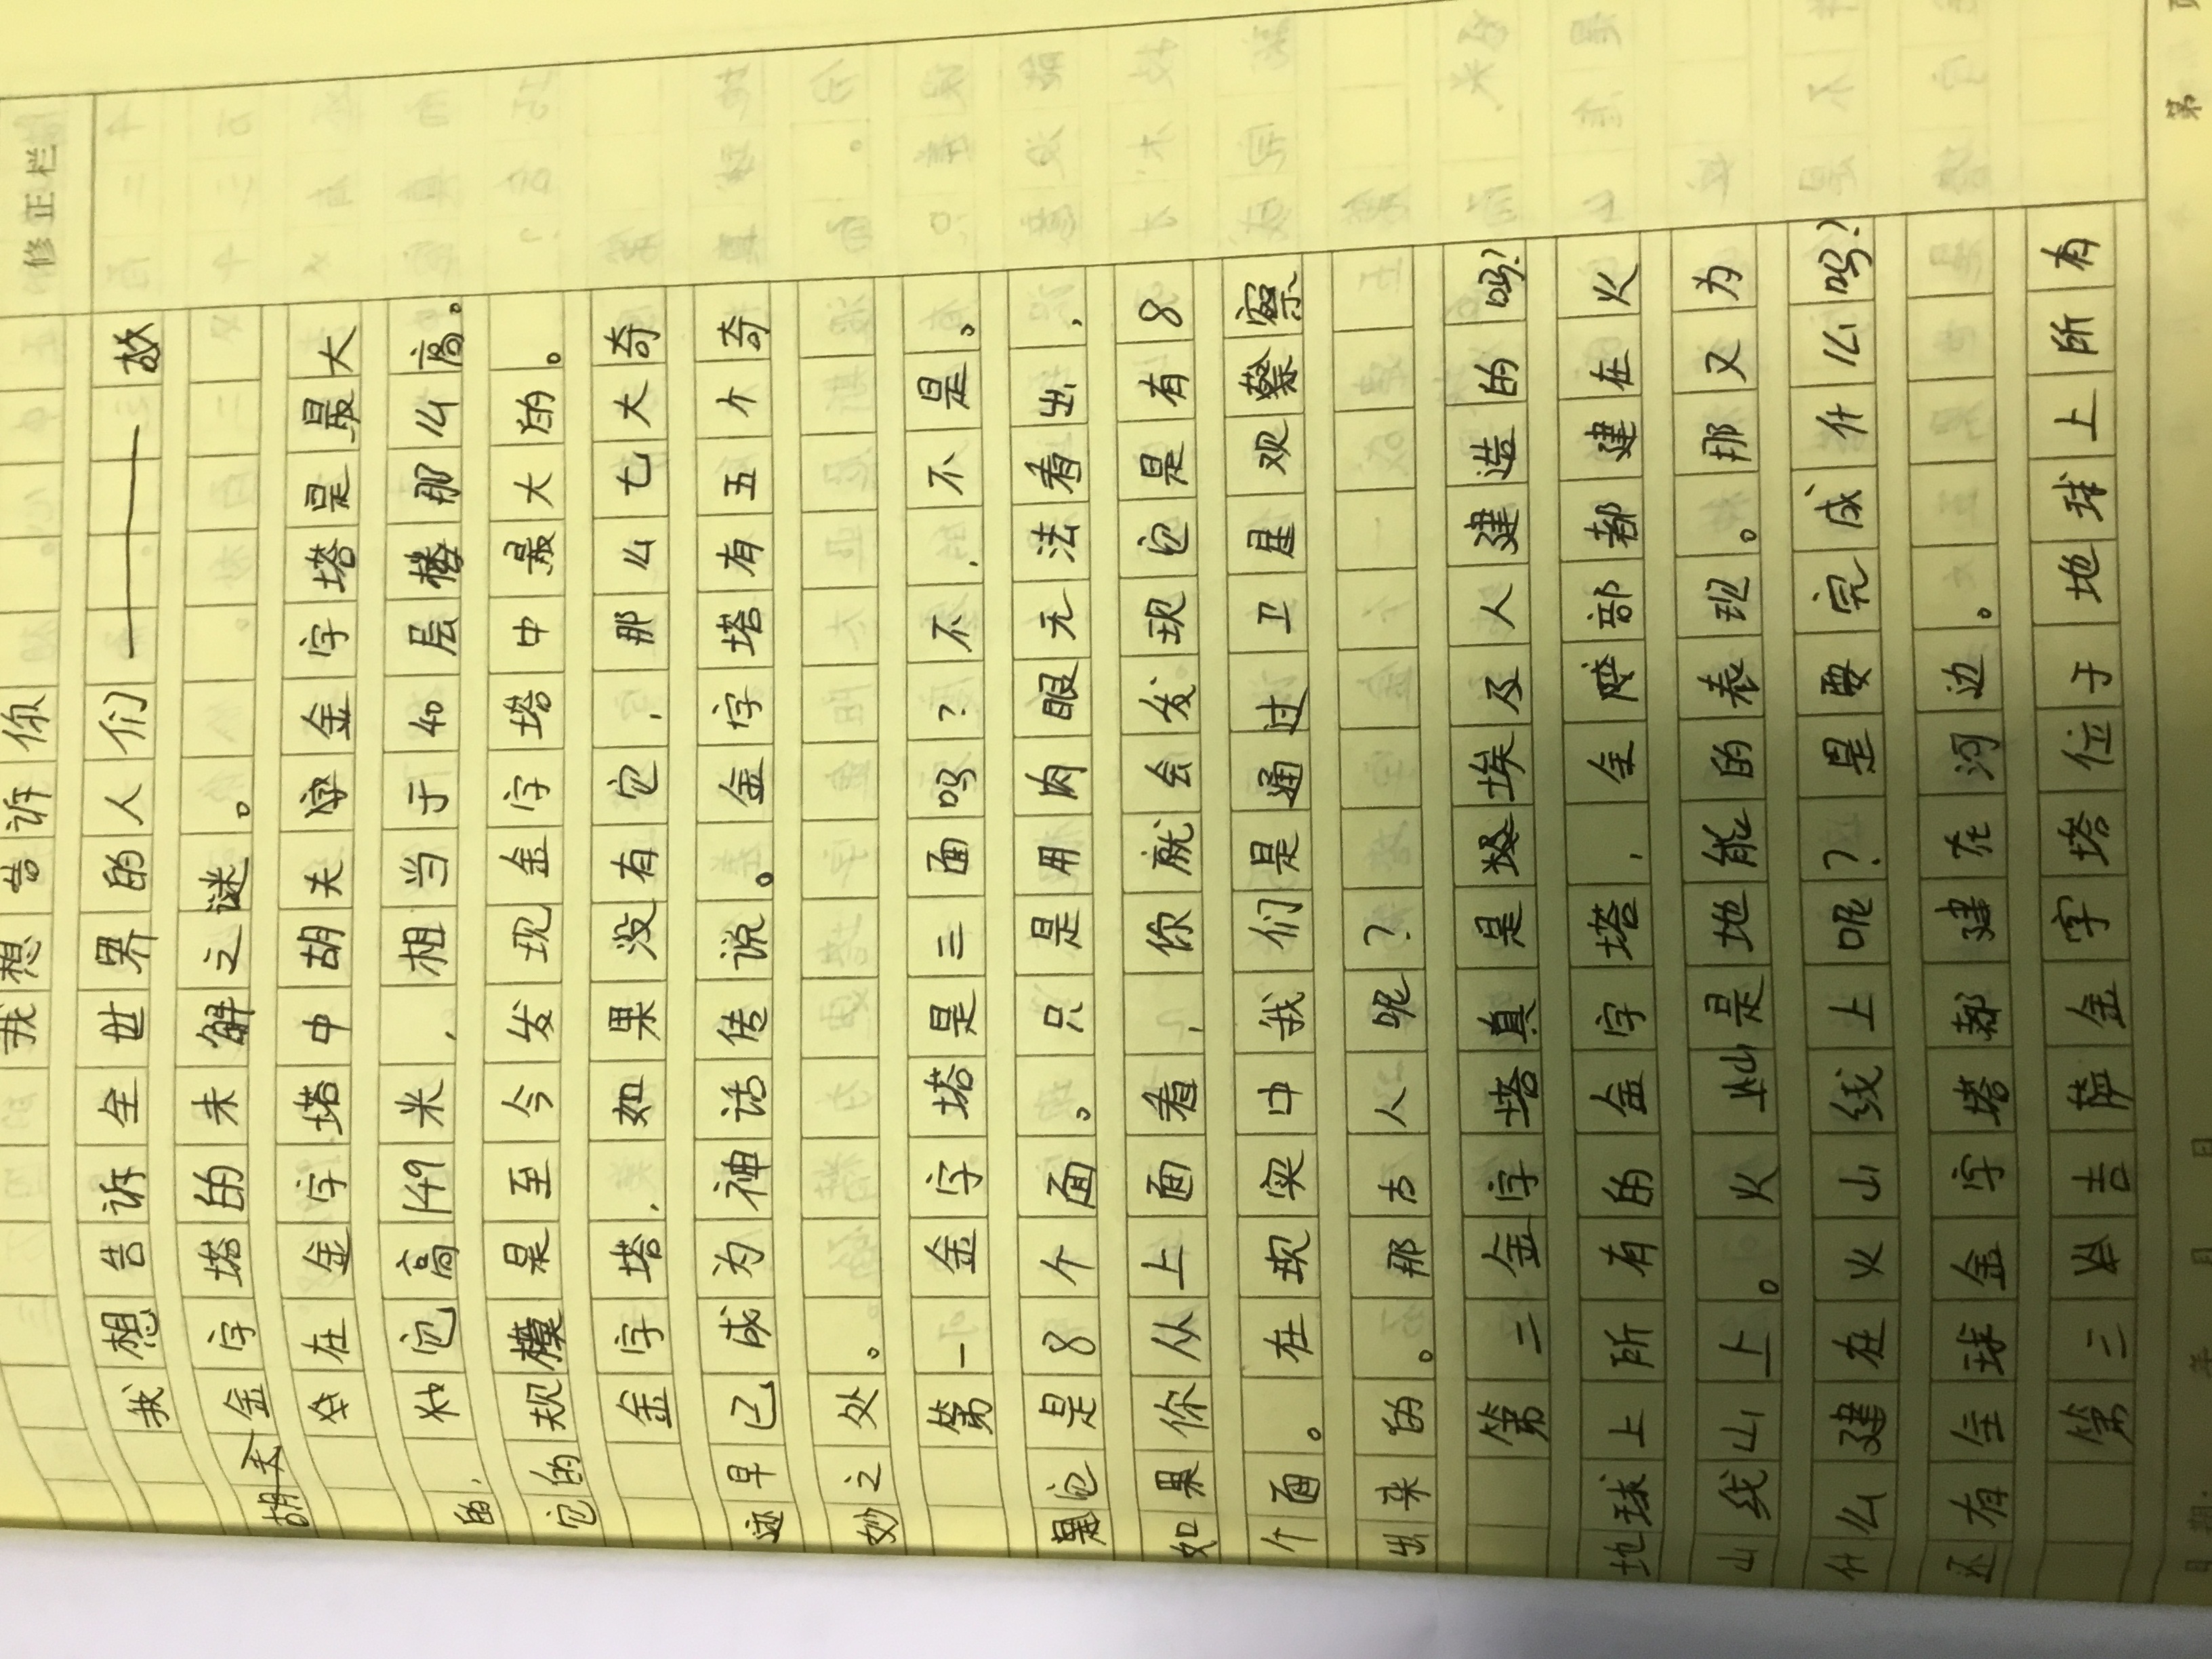 修正栏
我想告诉你
我想告诉全世界的人们——故
金字塔的未解之谜。
胡夫
在金字塔中胡夫金字塔是最大
的,和它高149米,相当于40层楼那么高。
它的规模是至今发现金字塔中最大的。
金字塔,如果没有它,那么七大奇
迹早已成为神话传说。金字塔有五个奇
妙之处。
第一金字塔是三面吗?不不,不是。
是它是8个面。只是用肉眼无法看出,
如果你从上面看,你就会发现它是有8
个面。在现实中我们是通过卫星观察察
出来的。那古人呢?
第二金字塔真是埃及人建造的吗?
地球上所有的金字塔,全部都建在火
山线山上。火山是地能的表现。那又为
什么建在火山线上呢?是要完成什么吗?
还有全球金字塔都建在河边。
第三吉萨金字塔位于地球上所有
第 页
年 月 日